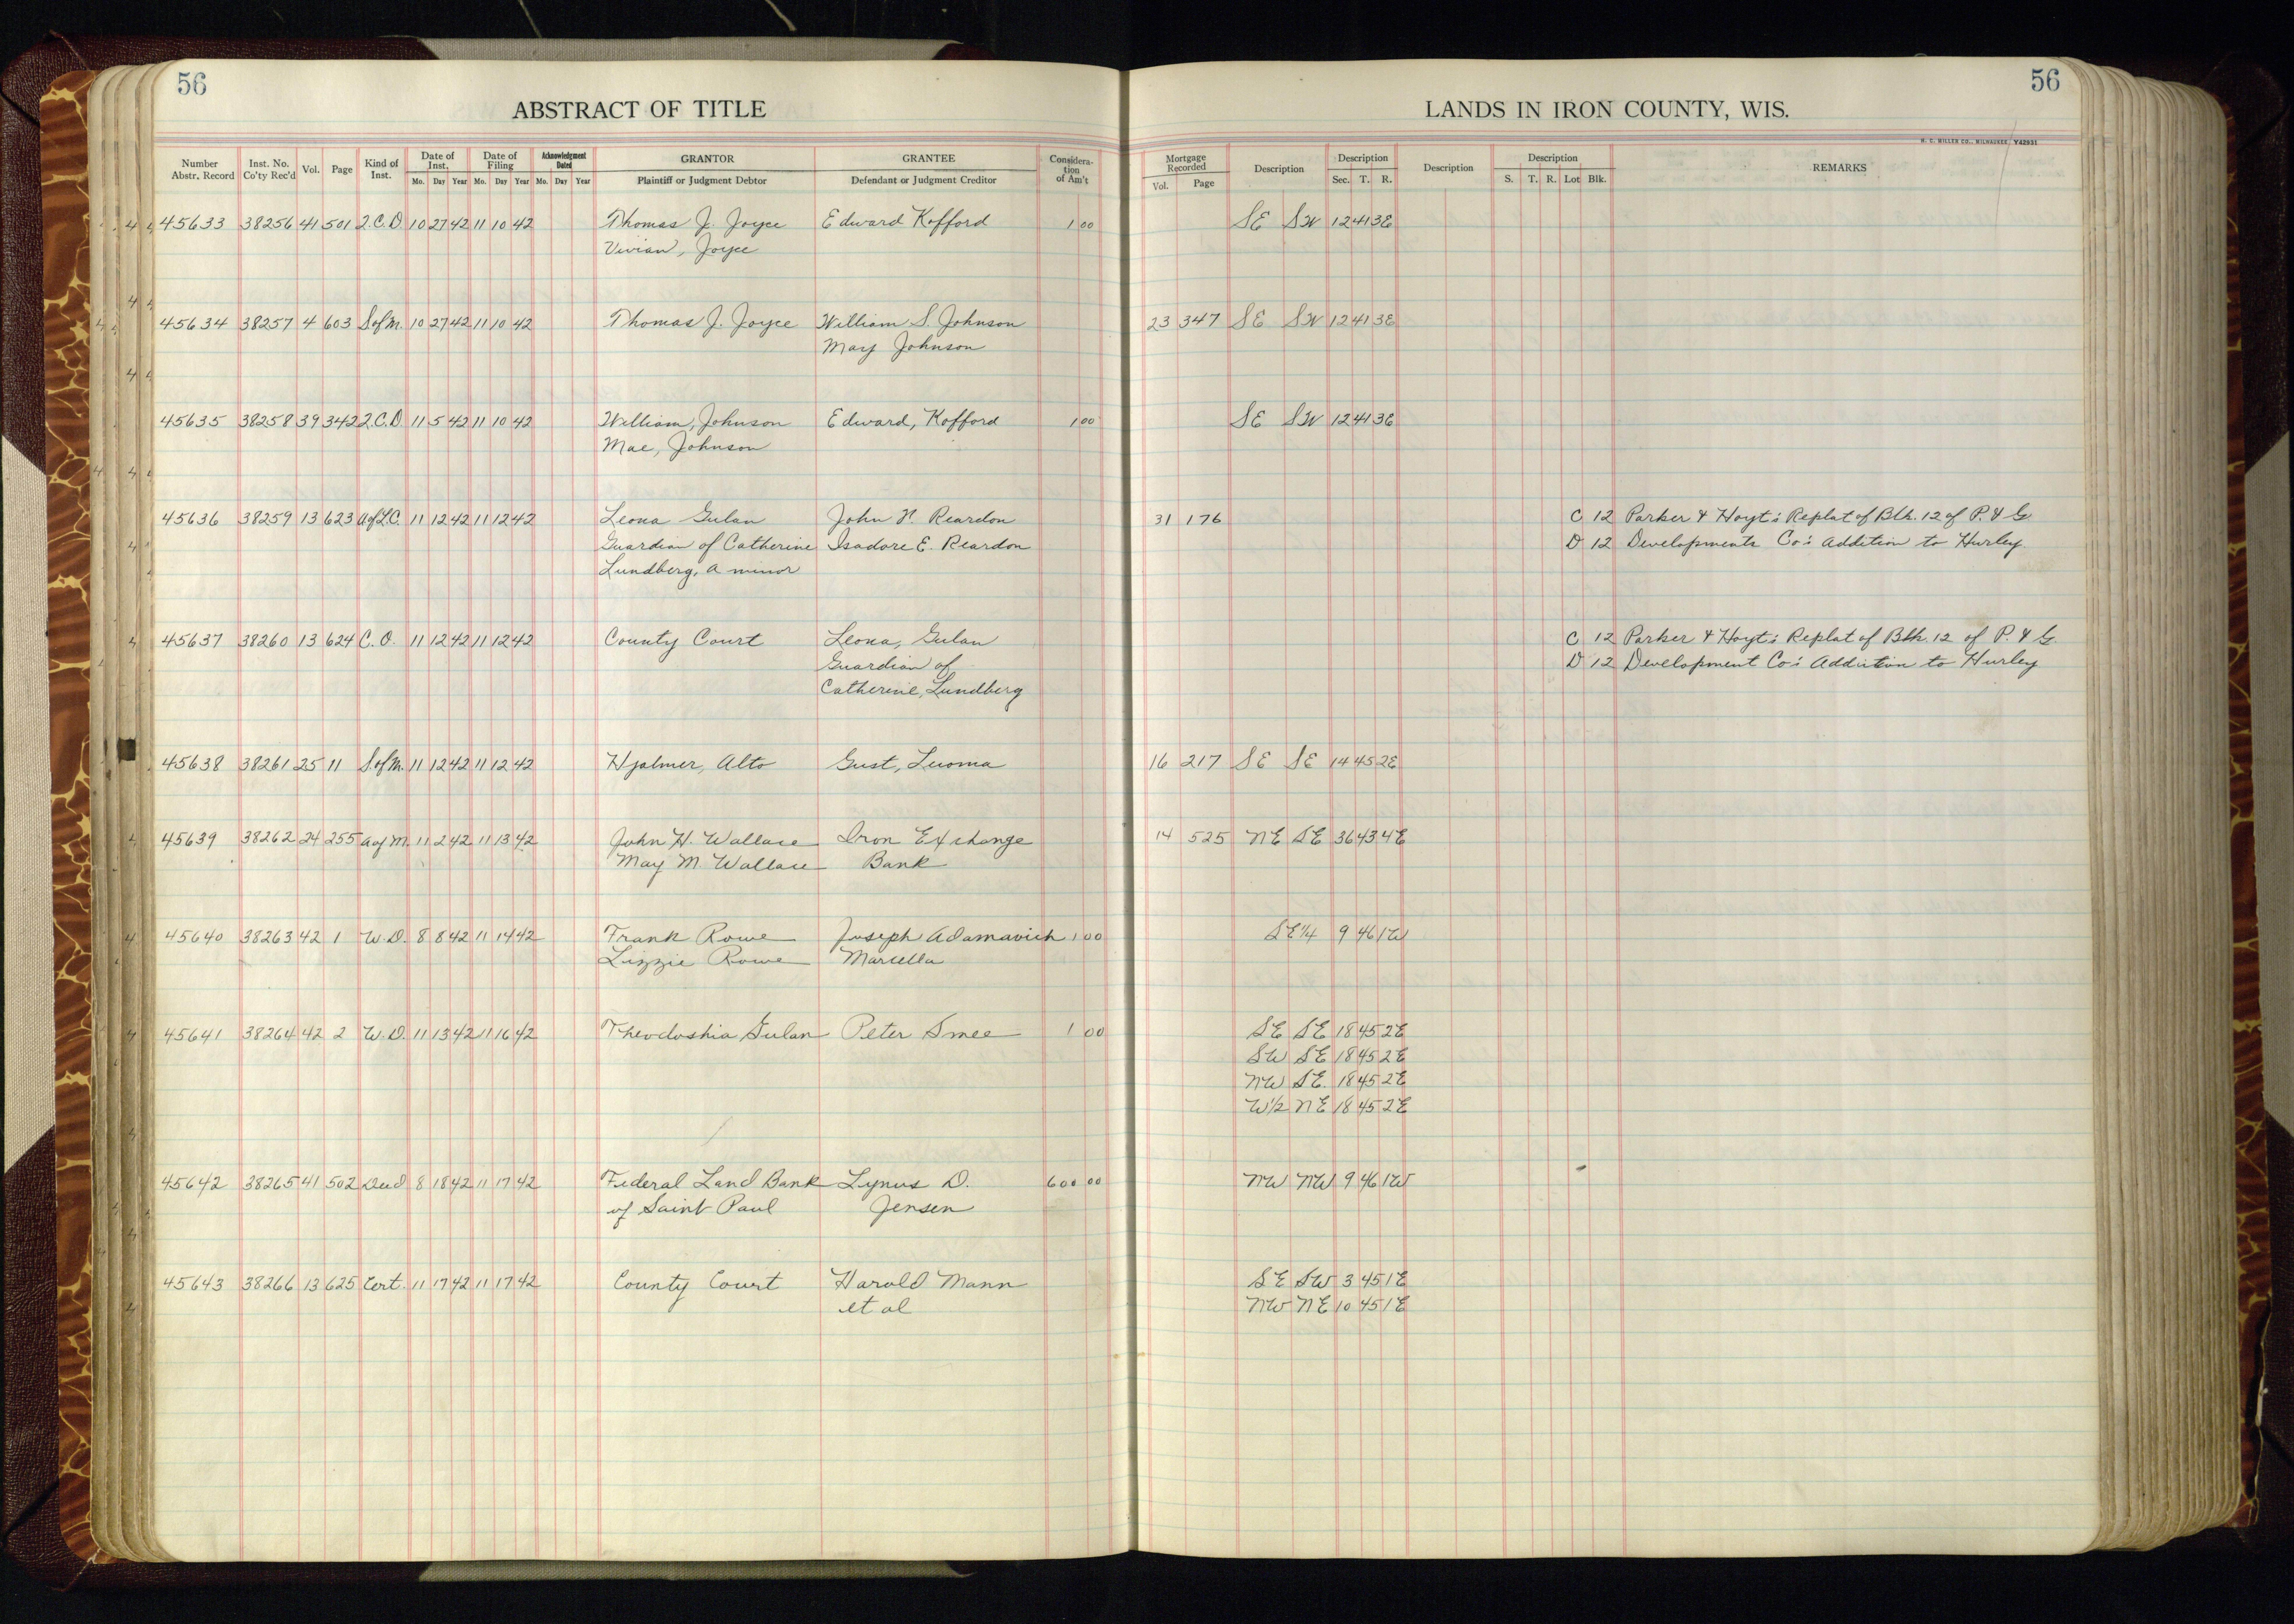 56
ABSTRACT OF TITLE
Number Abstr. Record Inst. No. Co'ty Rec'd Vol. Page Kind of Inst. Date of Inst. Mo. Day Year Date of Filing Mo. Day Year Acknowledgment Dated Mo. Day Year GRANTOR Plaintiff or Judgment Debtor GRANTEE Defendant or Judgment Creditor Considera-tion of Am't
56
LANDS IN IRON COUNTY, WIS.
H. C. MILLER CO., MILWAUKEE Y42931
Mortgage Recorded Vol. Page Description Description Sec. T. R. Description Description S. T. R. Lot Blk. REMARKS
45633 38256 41 501 Q.C.D. 10 27 42 11 10 42 Thomas J. Joyce Edward Kofford 1 00 SE SW 12 41 3E
Vivian, Joyce
45634 38257 4 603 S of M. 10 27 42 11 10 42 Thomas J. Joyce William S. Johnson 23 347 SE SW 12 41 3E
May Johnson
45635 38258 39 342 Q.C.D. 11 5 42 11 10 42 William, Johnson Edward, Kofford 1 00 SE SW 12 41 3E
Mae, Johnson
45636 38259 13 623 A of L.C. 11 12 42 11 12 42 Leona Gulan John N. Reardon 31 176 C 12 Parker & Hoyt's Replat of Blk. 12 of P. & G.
Guardian of Catherine Isadore E. Reardon D 12 Developments Co's Addition to Hurley.
Lundberg, a minor
45637 38260 13 624 C. O. 11 12 42 11 12 42 County Court Leona, Gulan C 12 Parker & Hoyt's Replat of Blk. 12 of P. & G.
Guardian of D 12 Development Co's Addition to Hurley
Catherine, Lundberg
45638 38261 25 11 S of M. 11 12 42 11 12 42 Hjalmer, Alto Gust, Luoma 16 217 SE SE 14 45 2E
45639 38262 24 255 A of M. 11 2 42 11 13 42 John H. Wallace Iron Exchange 14 525 NE SE 36 43 4E
May M. Wallace Bank
45640 38263 42 1 W.D. 8 8 42 11 14 42 Frank Rowe Joseph Adamavich 1 00 SE¼ 9 46 1W
Lizzie Rowe Marcella
45641 38264 42 2 W.D. 11 13 42 11 16 42 Theodoshia Gulan Peter Smee 1 00 SE SE 18 45 2E
SW SE 18 45 2E
NW SE. 18 45 2E
W½ NE 18 45 2E
45642 38265 41 502 Deed 8 18 42 11 17 42 Federal Land Bank Lynus D. 600 00 NW NW 9 46 1W
of Saint Paul Jensen
45643 38266 13 625 Cert. 11 17 42 11 17 42 County Court Harold Mann SE SW 3 45 1E
et al NW NE 10 45 1E